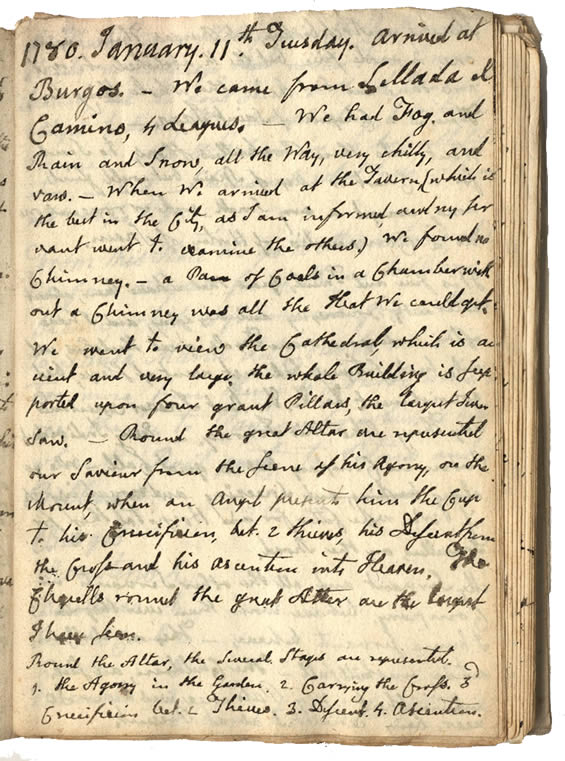 1780. January. 11.th Tuesday. arrived at
Burgos. — We came from Sellada el
Camino, 4 Leagues. — We had Fog. and
Rain and Snow, all the Way, very chilly, and
raw. — When We arrived at the Tavern, (which is
the best in the City, as I am informed, and my ser
vant went to examine the others) We found no
Chimney. — a Pan of Coals in a Chamber with
out a Chimney was all the Heat We could get.
We went to view the Cathedral, which is an
cient and very large. the whole Building is sup
ported upon four grand Pillars, the largest I ever
saw. — Round the great Altar are represented
our Saviour from the Scene of his Agony, on the
Mount, when an Angel presents him the Cup
to his Crucifixion, bet. 2 thieves, his Descent from
the Cross and his ascention into Heaven. The
Chapells round the great Altar are the largest
I have seen.
Round the Altar, the several Stages are represented.
1. the Agony in the Garden. 2. Carrying the Cross. 3
Crucifixion bet. 2 Thieves. 3. Descent. 4. Ascention.